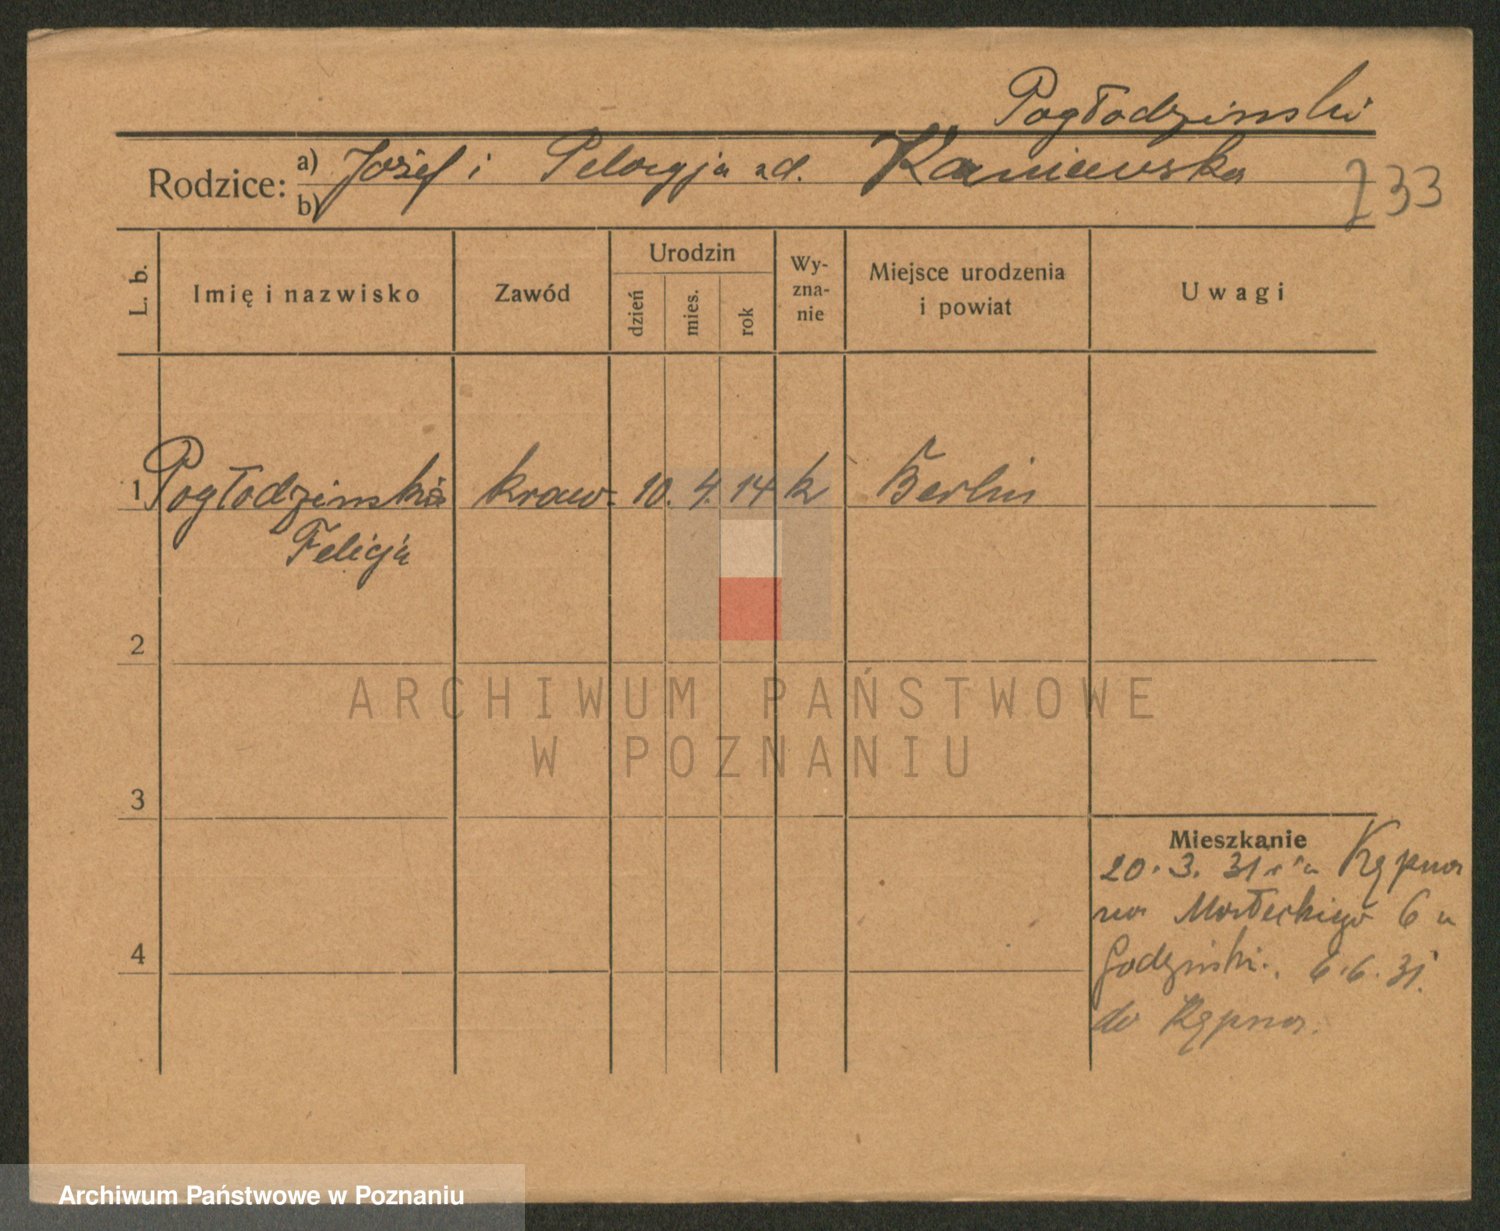 Pogłodzinski
Rodzice: a) Józef i Pelagja zd. Kaniewska
b)
233
L. b.
Imię i nazwisko
Zawód
Urodzin
dzień
mies.
rok
Wy-
zna-
nie
Miejsce urodzenia
i powiat
Uwagi
1 Pogłodzinska kraw. 10. 4. 14 k Berlin
Felicja
2
3
4
Mieszkanie
20. 3. 31 Kępna
na Małeckiego 6 u
Godziński. 6. 6. 31.
do Kępna.
ARCHIWUM PAŃSTWOWE
W POZNANIU
Archiwum Państwowe w Poznaniu